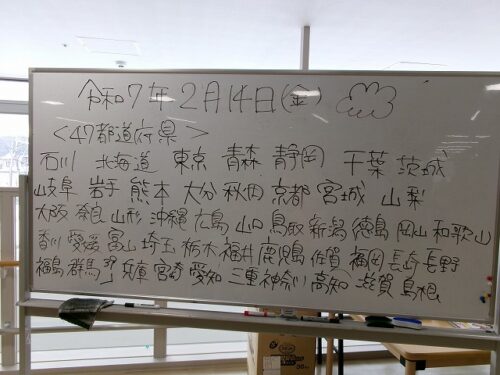 令和7年2月14日(金)
<47都道府県>
石川 北海道 東京 青森 静岡 千葉 茨城
岐阜 岩手 熊本 大分 秋田 京都 宮城 山梨
大阪 奈良 山形 沖縄 広島 山口 鳥取 新潟 徳島 岡山 和歌山
香川 愛媛 富山 埼玉 栃木 福井 鹿児島 佐賀 福岡 長崎 長野
福島 群馬 兵庫 宮崎 愛知 三重 神奈川 高知 滋賀 島根